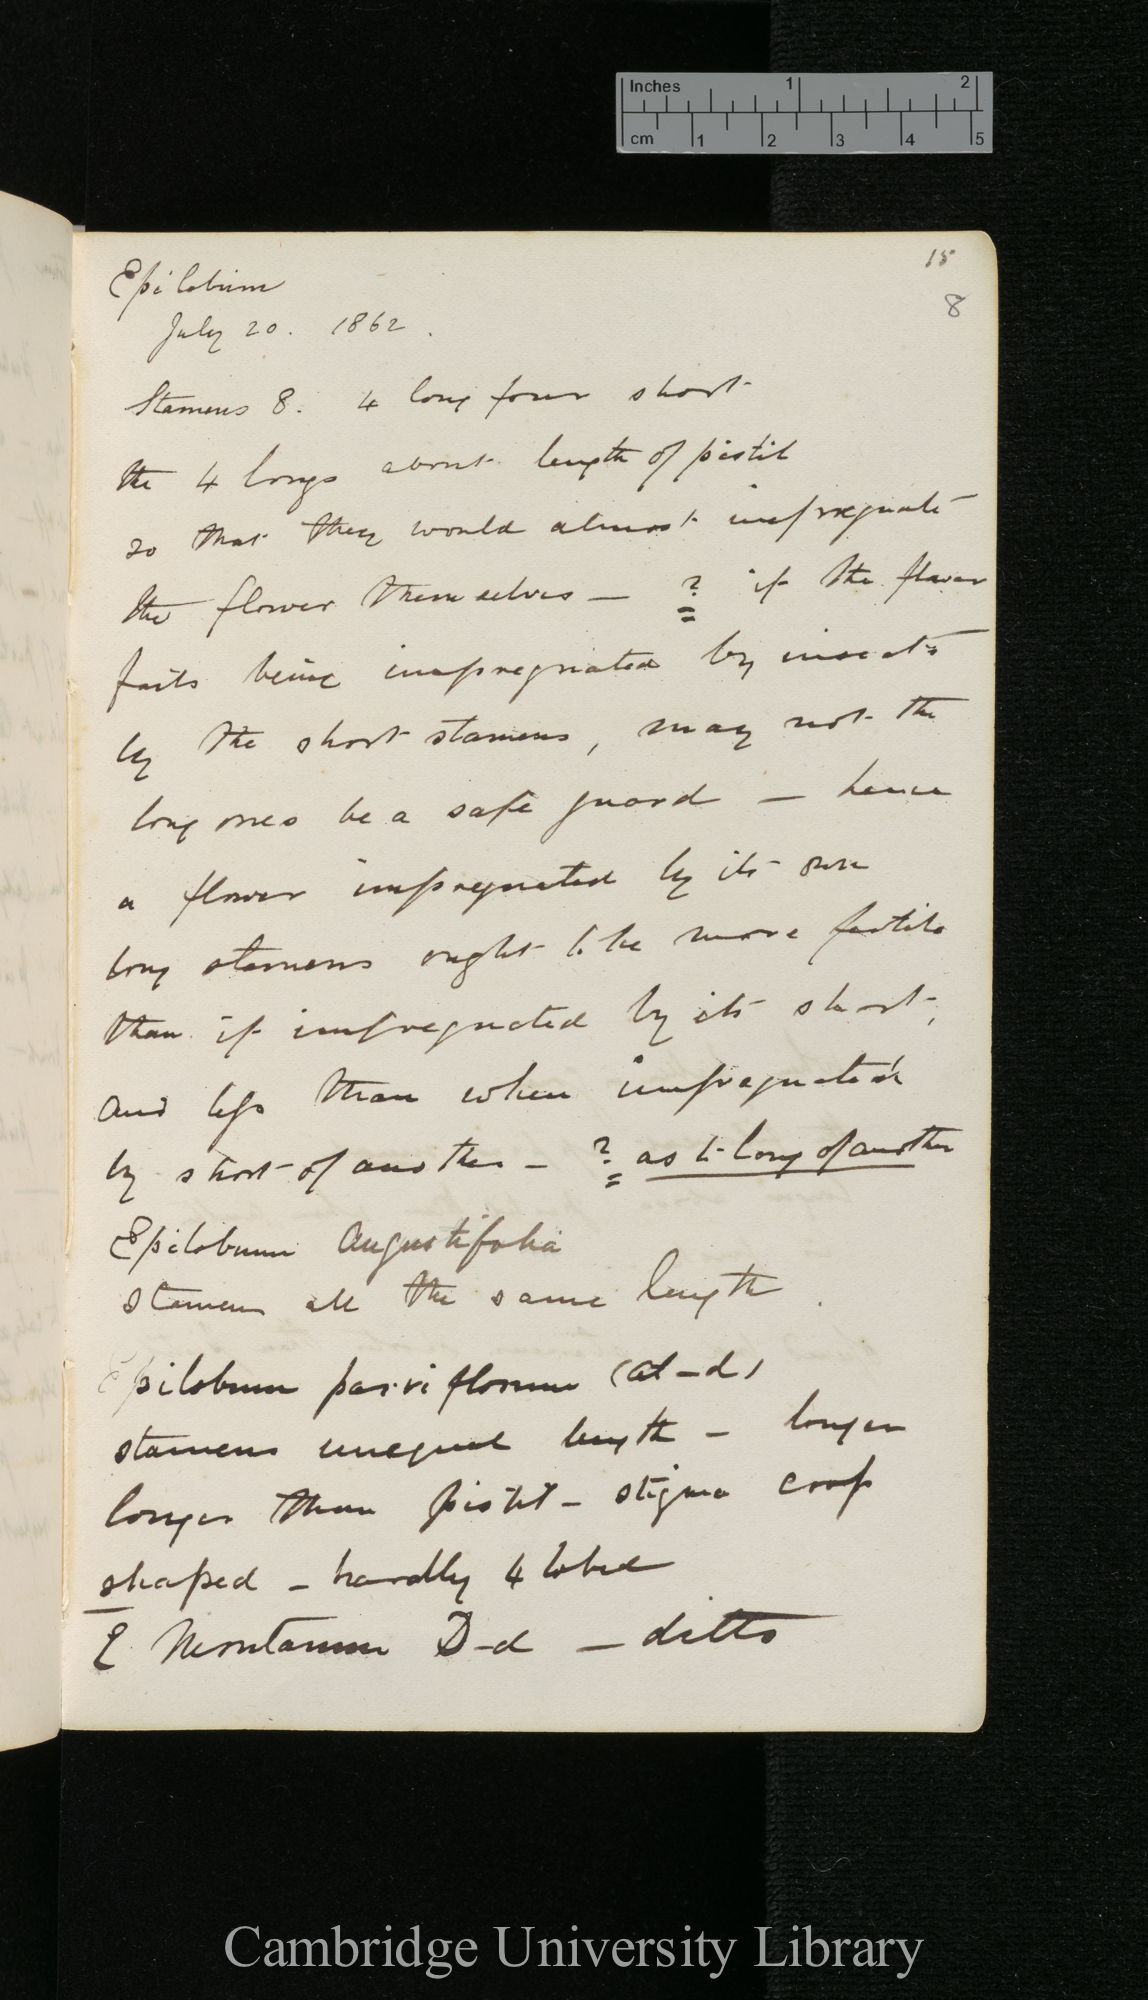 Inches 1 2
cm 1 2 3 4 5
15
8
Epilobium
July 20. 1862.
Stamens 8. 4 long four short
the 4 longs about length of pistil
so that they would almost impregnate
the flower themselves — ? if the flower
fails being impregnated by insects
by the short stamens, may not the
long ones be a safe guard — hence
a flower impregnated by its own
long stamens ought to be more fertile
than if impregnated by its short,
and less than when impregnated
by short of another — ? as to long of another
Epilobium Angustifolia
stamens all the same length.
Epilobium parviflorum
stamens unequal length — longer
longer than pistil — stigma
shaped — hardly 4 lobed
E Montanum D-d — ditto
Cambridge University Library